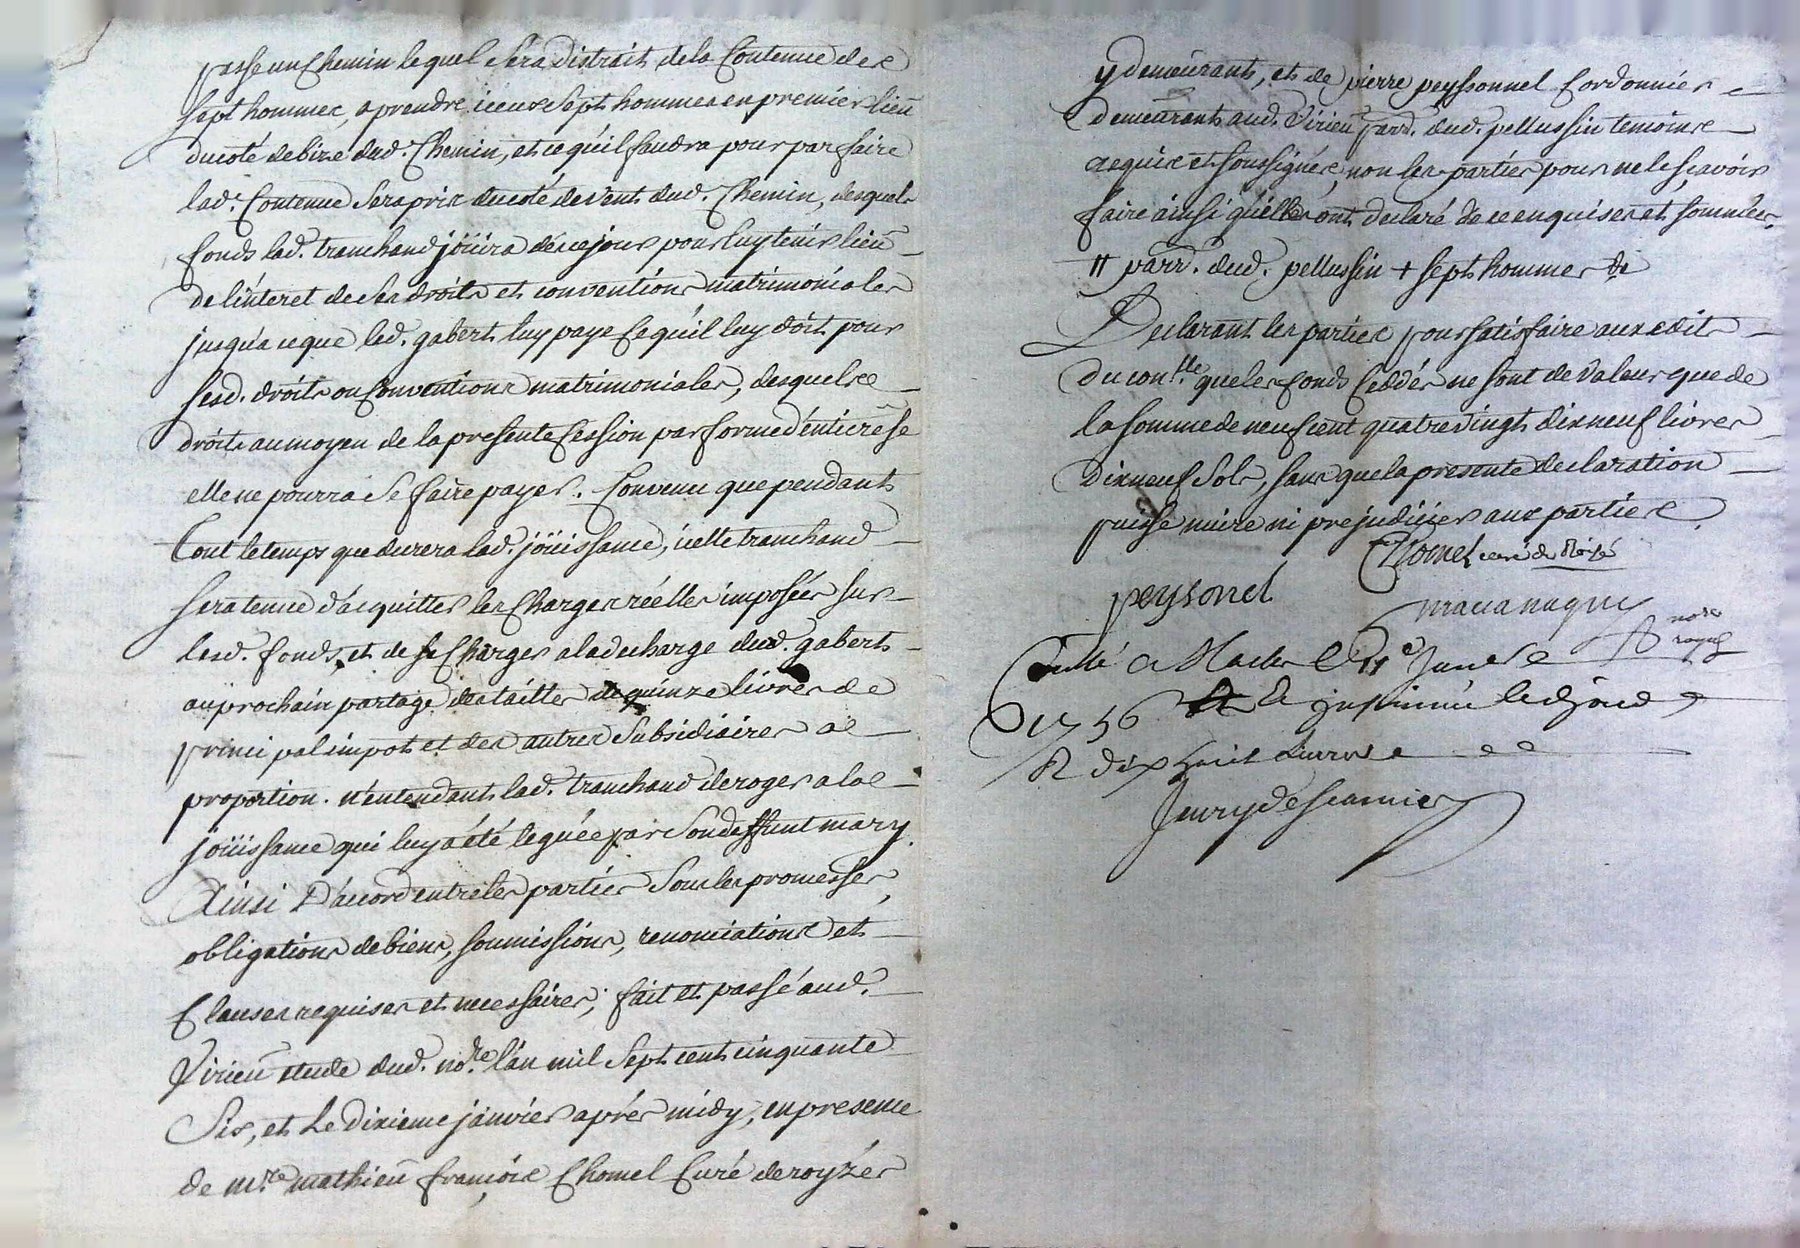 passe un Chemin lequel sera distrait de la Contenue des
sept hommes, a prendre iceux sept hommes en premier lieu
du coté de bize dud. Chemin, et ce qu'il faudra pour parfaire
lad. Contenue sera pris du coté de vent dud. Chemin, desquels
fonds lad. tranchand joüira dés ce jour pour luy tenir lieu
de l'interet de ses droits et conventions matrimoniales
jusqu'a ce que led. gabert luy paye ce qu'il luy doit pour
sesd. droits ou Conventions matrimoniales, desquels
droits au moyen de la presente Cession par forme d'entiere se
elle ne pourra se faire payer. Convenu que pendant
tout le temps que durera lad. joüissance, icelle tranchand
sera tenue d'acquitter les Charges réelles imposées sur
lesd. fonds, et de se Charger a la decharge dud. gabert
au prochain partage des tailles de quinze livres de
principal impot et des autres subsidiaires a
proportion. n'entendant lad. tranchand deroger a la
joüissance qui luy a été leguée par son deffunt mary.
Ainsi D'accord entre les parties sous les promesses,
obligations de biens, soumissions, renonciations et
Clauses requises et necessaires; fait et passé aud.
Virieu etude dud. no.re l'an mil sept cent cinquante
Six, et Le dixieme janvier aprés midy, en presence
de m.re mathieu françois Chomel Curé de royzés
y demeurant, et de pierre peyssonnel Cordonnier
demeurant aud. Virieu parr. dud. pellussin temoins
requis et soussignés, non les parties pour ne le sçavoir
faire ainsi qu'elles ont declaré de ce enquises et sommées.
" parr. dud. pellussin + sept hommes de
Declarant les parties pour satisfaire aux edits
du con.lle que les fonds Ceddés ne sont de valeur que de
la somme de neuf cent quatre vingt dix neuf livres
dix neuf sols, sans que la presente declaration
puisse nuire ni prejudicier aux parties.
Chomel curé de
peysonel
no.re
royal
a le 11e
1756
R dix huit Livres